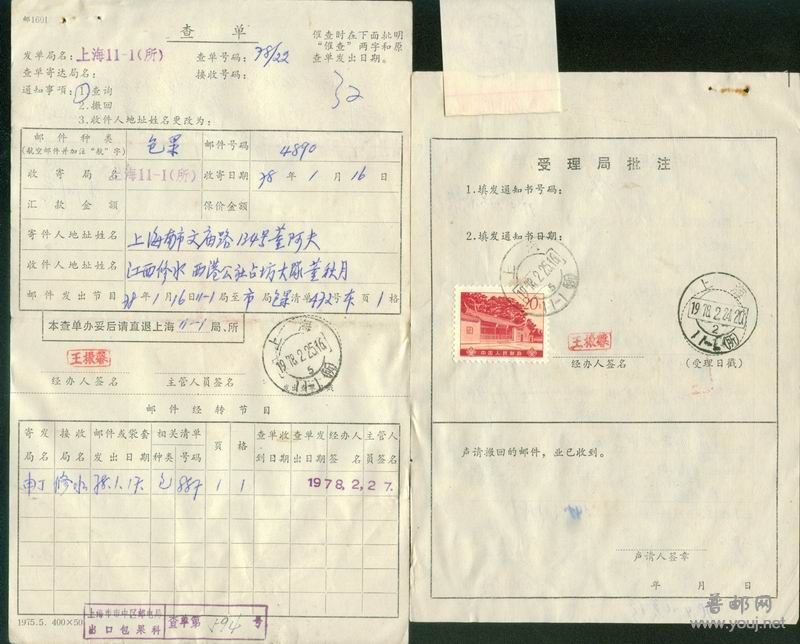 邮1601
查单
催查时在下面批明
“催查”两字和原
查单发出日期。
发单局名：上海11-1(所)
查单号码：78/22
查单寄达局名：
接收号码：
32
通知事项：1.查询
2.撤回
3.收件人地址姓名更改为：
邮件种类
(航空邮件并加注“航”字)
包果
邮件号码
4890
收寄局名
上海11-1(所)
收寄日期
78年1月16日
汇款金额
保价金额
寄件人地址姓名
上海南市文庙路124号董阿大
收件人地址姓名
江西修水西港公社占坊大队董秋月
邮件发出节目
78年1月16日11-1局至市局包果清单472号 页1格
本查单办妥后请直退上海11-1局、所
王振藻
上海
1978.2.25(16)
5
11-1(所)
经办人签名
主管人员签名
邮件经转节目
寄发局名
接收局名
邮件或袋套发出日期
相关清单种类 号码
页
格
查单收到日期
查单发出日期
经办人签名
主管人员签名
修水 78.1.17. 包 887 1 1
1978.2.27.
1975.5. 400×50
上海市市中区邮电局
出口包果科
查单第 号
受理局批注
1.填发通知书号码：
2.填发通知书日期：
上海
1978.2.25(16)
5
11-1(所)
中国人民邮政
上海
1978.2.24(20)
2
11-1(所)
王振藻
经办人签名
(受理日戳)
声请撤回的邮件，业已收到。
声请人签章
年 月 日
普邮网
www.youj.net